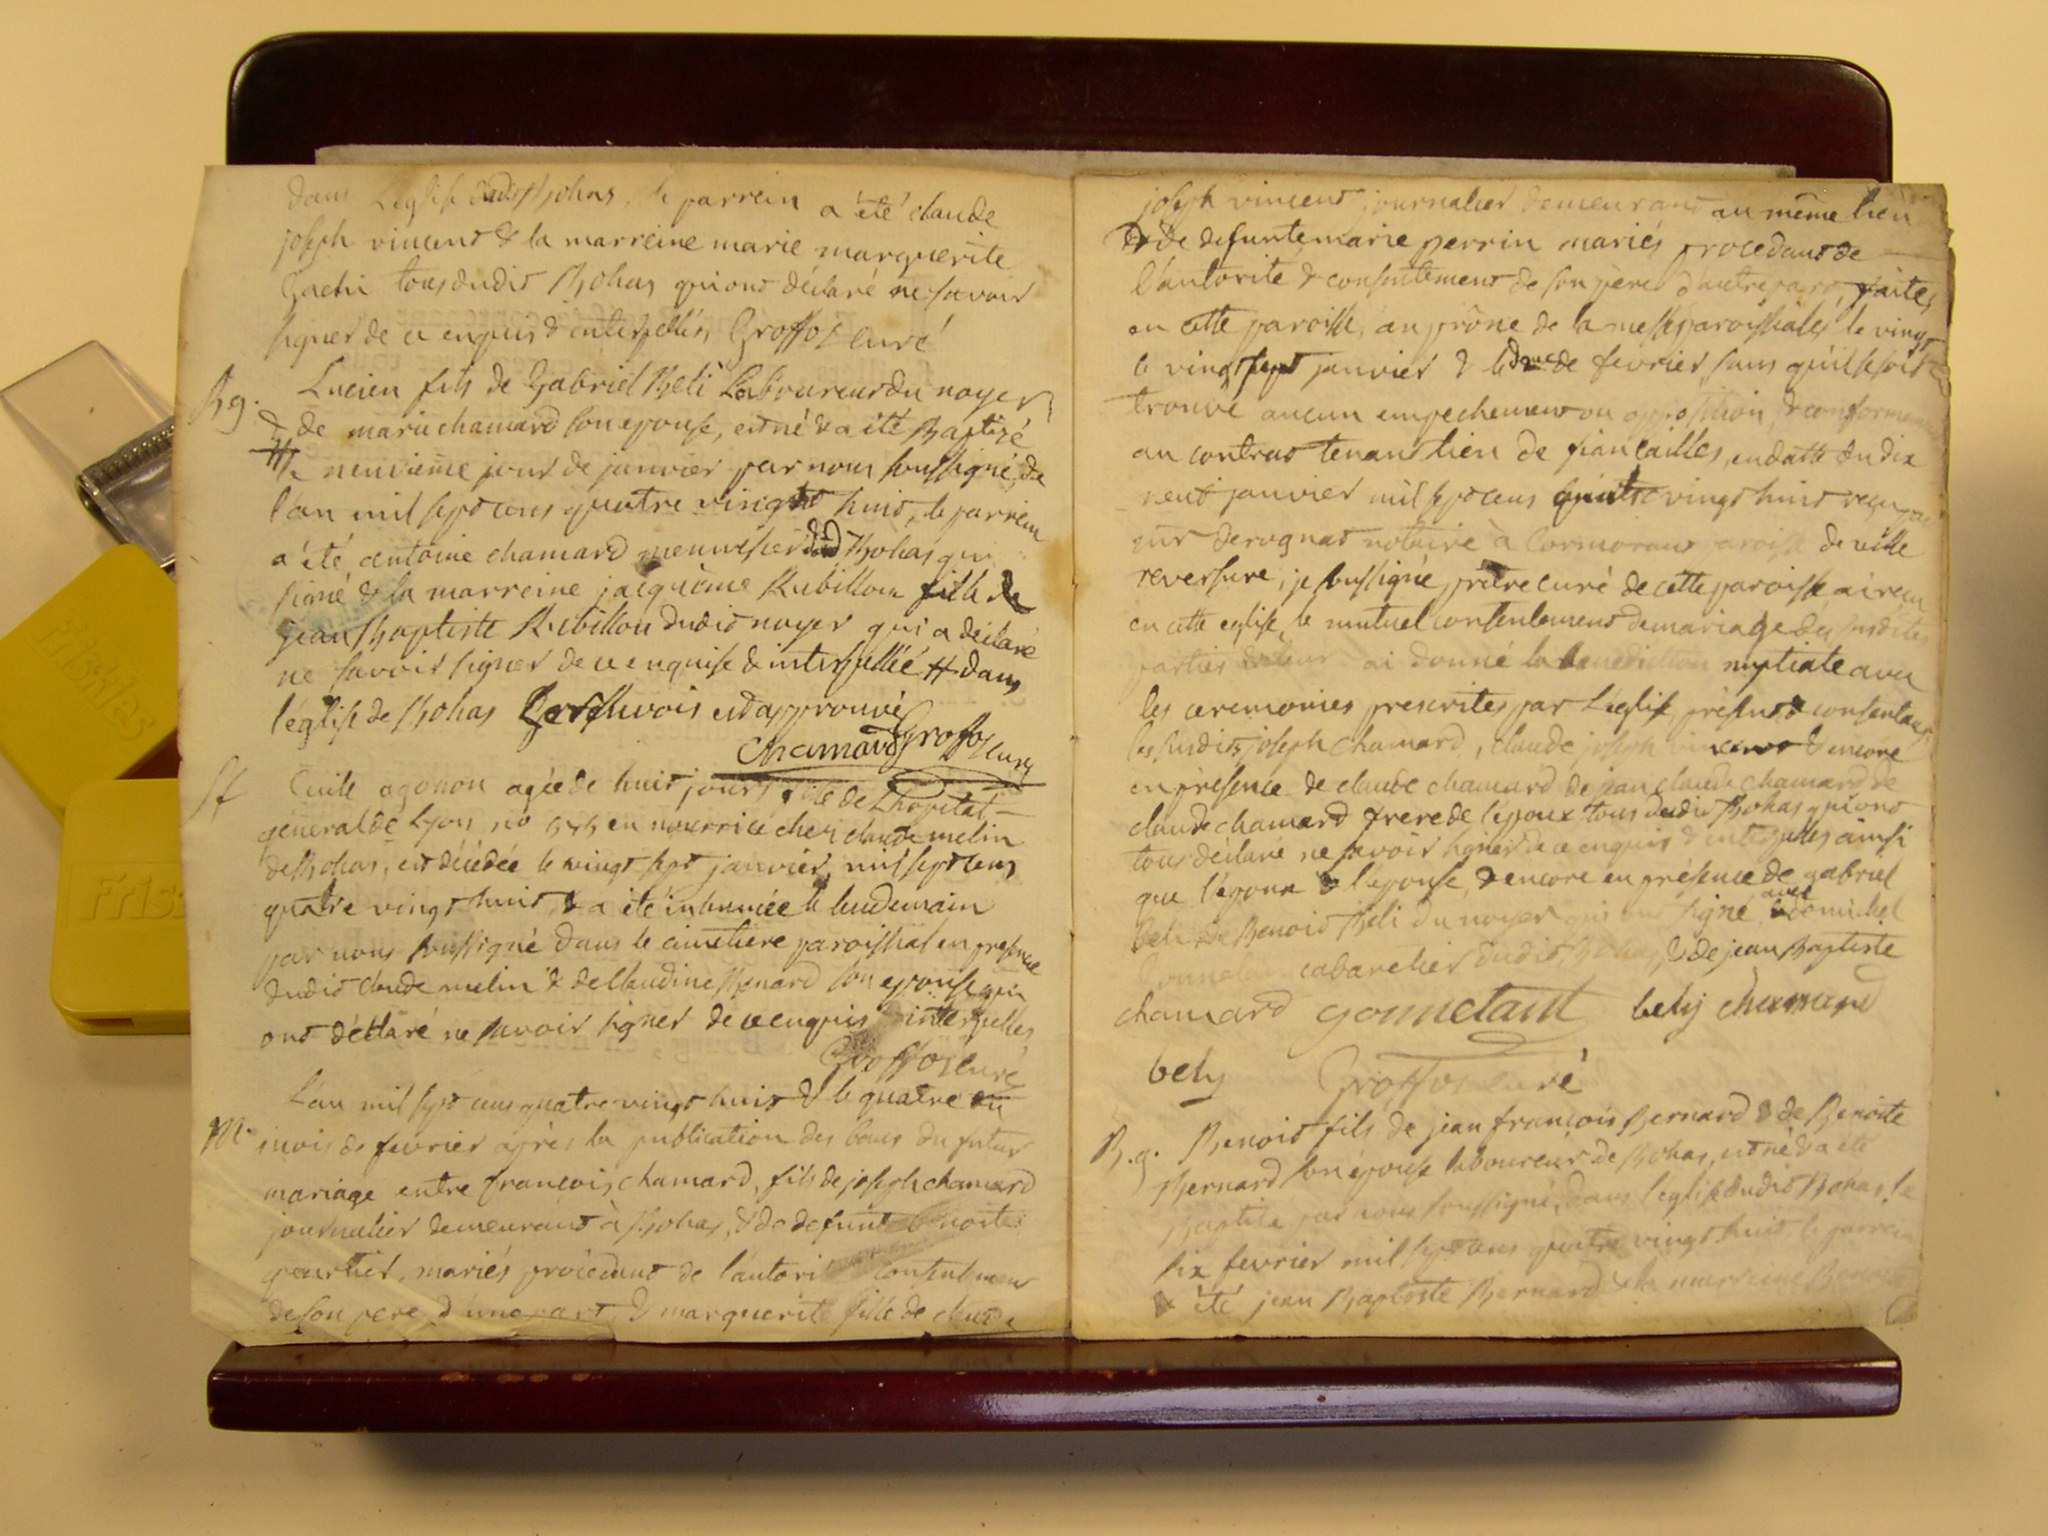 dans L'eglise dudit Rohas, le parrein a été claude
joseph vincent & la marreine marie marguerite
tous dudit Rohas qui ont déclaré ne savoir
signer de ce enquis & interpellés, Groffoz curé
Bg. Lucien fils de Gabriel Beli Laboureur du noyer
& de marie chamard son epouse, est né & a été Baptizé
# le neuvieme jour de janvier par nous soussigné, de
l'an mil sept cens quatre vingt huit, le parrein
a été antoine chamard menusier dud Rohas qui
signé & la marreine jacqueme Rubillon fille de
jean Baptiste Rubillon dudit noyer qui a déclaré
ne savoir signer de ce enquise & interpellée # dans
l'église de Rohas est approuvé
Chamard Groffoz curé
Sf Cecile agonon agée de huit jours, fille de L'hopital
general de Lyon, no en nourrice chez claude melin
de Rohas, est décédée le vingt sept janvier, mil sept cens
quatre vingt huit, & a été inhumée le lendemain
par nous soussigné dans le cimetiere paroissial en presence
dudit claude melin & de Claudine Renard son epouse qui
ont déclaré ne savoir signer de ce enquis interpelles
Groffoz curé
M. L'an mil sept cens quatre vingt huit & le quatre du
mois de fevrier après la publication des bans du futur
mariage entre francois chamard, fils de joseph chamard
journalier demeurant à Rohas, & de defunte benoite
mariés procedant de l'autorité consentement
de son pere d'une part & marguerite fille de claude
joseph vincent journalier demeurant au même lieu
& de defunte marie perrin mariés procedant de
l'autorité & consentement de son père d'autre part, faites
en cette paroisse, au prône de la messe paroissiales le vingt
le vingt sept janvier & le deux de fevrier sans qu'il se soit
trouvé aucun empechement ou opposition, & conformement
au contrat tenant lieu de fiancailles, en datte du dix
neuf janvier mil sept cens quatre vingt huit reçu par
notaire à Cormoran paroisse de ville
reversure; je soussigné prêtre curé de cette paroisse ai recu
en cette eglise, le mutuel consentement de mariage des susdites
parties & leur ai donné la benediction nuptiale avec
les ceremonies prescrites par L'eglise, présents & consentans
les susdits joseph chamard, claude joseph vincent & encore
en présence de claude chamard de jean claude chamard de
claude chamard frere de l'epoux tous dudit Rohas qui ont
tous déclaré ne savoir signer de ce enquis & interpelles ainsi
que l'epoux & l'epouse, & encore en presence de gabriel
beli de Benoit Beli du noyer qui ont signé avec michel
cabaretier dudit Rohas, & de jean Baptiste
chamard gonnetant bely chamard
bely Groffoz curé
B.g. Benoit fils de jean francois Bernard & de Benoite
Bernard son épouse laboureur de Rohas, est né & a été
baptisé par nous soussigné, dans l'eglise dudit Rohas, le
six fevrier mil sept cens quatre vingt huit, le parrein
a été jean Baptiste Bernard & la marreine